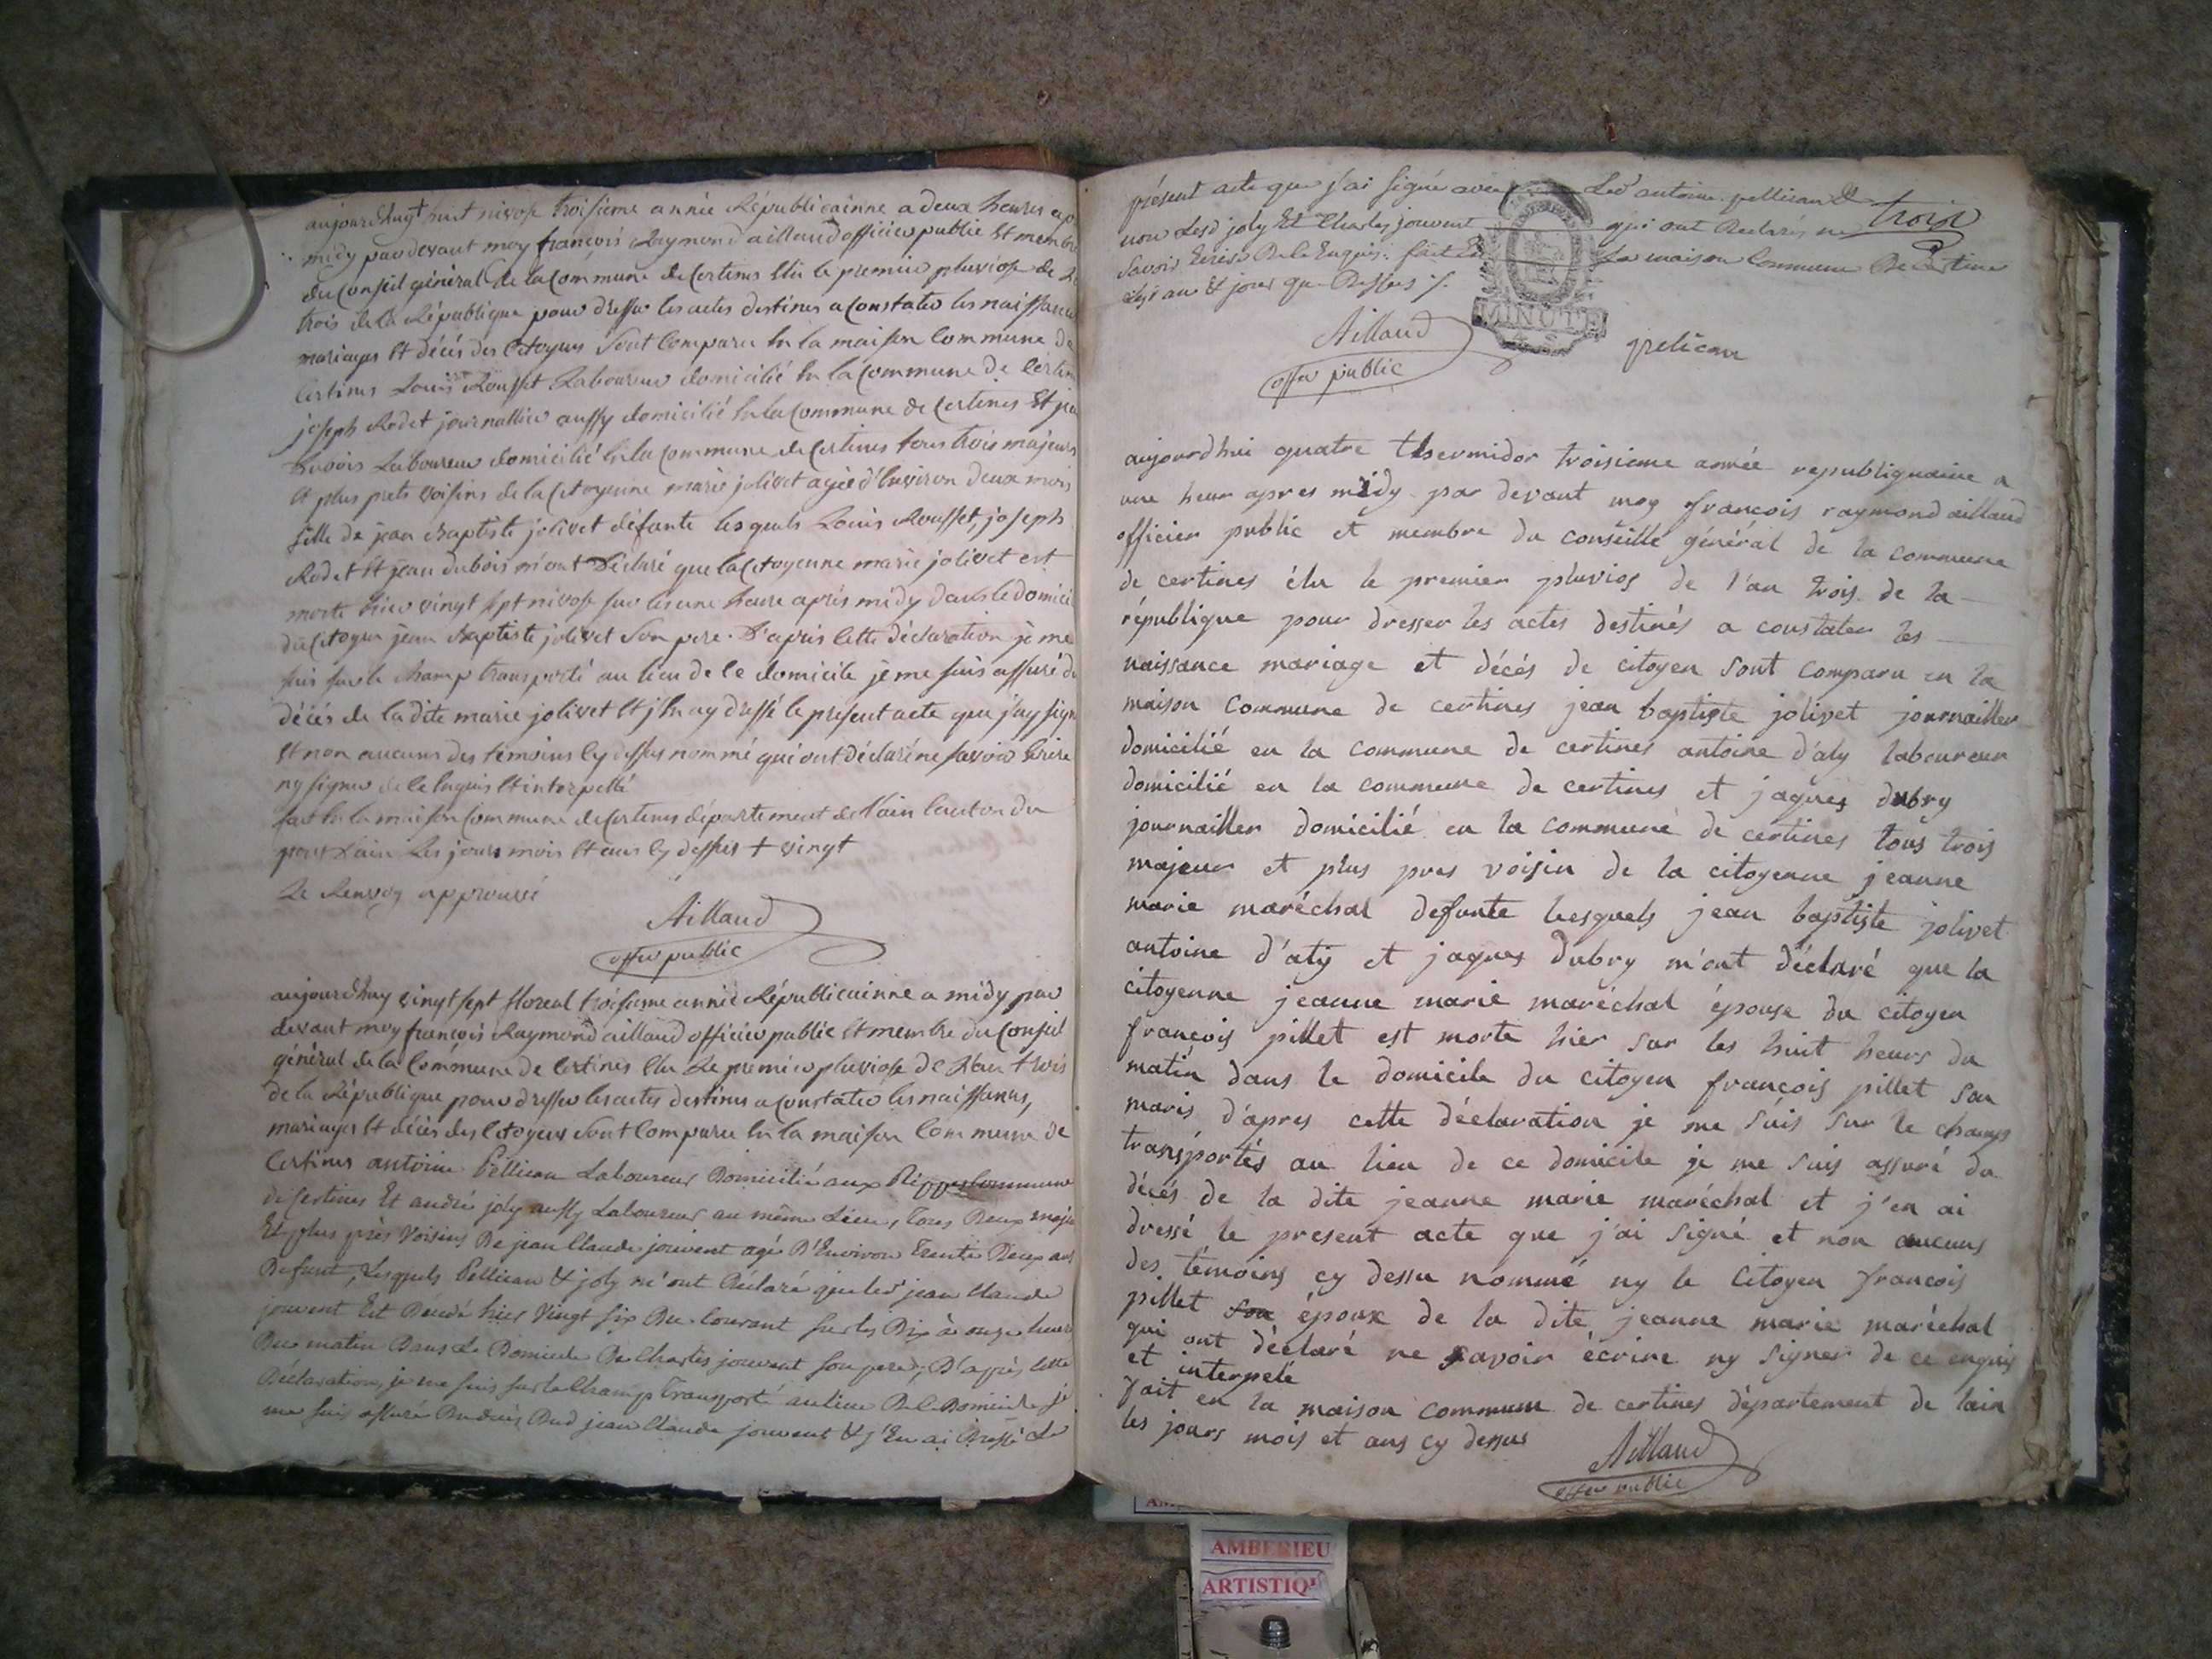 aujourdhuy† huit nivose troisieme année Républicainne a deux heures ap
midy pardevant moy françois Raymond aillaud officier public Et membre
du Conseil général de la Commune de Certines Elu le premier pluviose de
trois de la République pour dresser les actes destinés a Constater les naissances
mariages Et décés des Citoyens Sont Comparu En la maison Commune de
Certines Louis Rousset Laboureur domicilié En la Commune de Certin
joseph Rodet journallier aussy domicilié En la Commune de Certines Et jea
Dubois Laboureur domicilié En la Commune de Certines tous trois majeurs
Et plus prets voisins de la Citoyenne marie jolivet agée d'Environ deux mois
fille de jean Baptiste jolivet défunte lesquels Louis Rousset, joseph
Rodet Et jean dubois m'ont Déclaré que la Citoyenne marie jolivet est
morte hier vingt sept nivose sur les une heure aprés midy dans le domici
du Citoyen jean Baptiste jolivet Son pere. D'aprés Cette déclaration je me
suis sur le champ transporté au lieu de Ce domicile je me suis assuré du
décés de la dite marie jolivet Et j'En ay dressé le present acte que j'ay sign
Et non aucuns des témoins Cy dessus nommé qui ont déclaré ne savoir Ecrire
ny signer de Ce Enquis Et interpellé
fait En la maison Commune de Certines département de l'ain Canton du
pont d'ain Les jours mois Et ans Cy dessus † vingt
Le Renvoy approuvé
Aillaud
offer public
aujourdhuy vingt sept floreal troisieme année Républicainne a midy par
devant moy françois Raymond aillaud officier public Et membre du Conseil
général de la Commune de Certines Elu Le premier pluviose de L'an trois
de la République pour dresser les actes destinés a Constater les naissances,
mariages Et décés des Citoyens Sont Comparu En la maison Commune de
Certines antoine Pellican Laboureur Domicilié aux Rippes Commune
de Certines Et andré joly aussy Laboureur au même Lieu, Tous Deux maje
Et plus près Voisins De jean Claude jouvent agé D'Environ Trente Deux ans
Defunt, Lesquels Pellican & joly m'ont Déclaré que led jean Claude
jouvent Est Décédé hier Vingt six Du Courant sur les Dix à onze heures
Du matin Dans Le Domicile De Charles jouvent son pere; D'après Cette
Déclaration, je me suis sur le Champ Transporté au lieu De Ce Domicile je
me suis assuré Du décès Dud jean Claude jouvent & j'En ai Dressé Le
présent acte que j'ai signé avec Led antoine pellican &
trois
non Lesd joly Et Charles jouvent qui ont Déclarés ne
Savoir Ecrire De Ce Enquis. fait En La maison Commune De Certines
Les an & jour que Dessus ⁒.
MINUTE
Aillaud
offer public
pelican
aujourdhui quatre thermidor troisieme année republiquaine a
une heur apres midy par devant moy francois raymond aillaud
officier public et membre du conseille général de la commune
de certines élu le premier pluvios de l'an trois de la
république pour dresser les actes destinés a constater les
naissance mariage et décés de citoyen sont comparu en la
maison commune de certines jean baptiste jolivet journailler
domicilié en la commune de certines antoine d'aly laboureur
domicilié en la commune de certines et jaques dubry
journailler domicilié en la commune de certines tous trois
majeur et plus pres voisin de la citoyenne jeanne
marie maréchal defunte lesquels jean baptiste jolivet
antoine d'aly et jaques dubry m'ont déclaré que la
citoyenne jeanne marie maréchal épouse du citoyen
françois pillet est morte hier sur les huit heurs du
matin dans le domicile du citoyen françois pillet son
maris d'apres cette déclaration je me suis sur le champ
transportés au lieu de ce domicile je me suis assuré du
décés de la dite jeanne marie maréchal et j'en ai
dressé le present acte que j'ai signé et non aucuns
des témoins cy dessu nommé ny le citoyen francois
pillet son époux de la dite jeanne marie maréchal
qui ont déclaré ne savoir écrire ny signer de ce enquis
et interpelé
fait en la maison commune de certines département de lain
les jours mois et ans cy dessus
Aillaud
offer public
AMBERIEU
ARTISTIQU